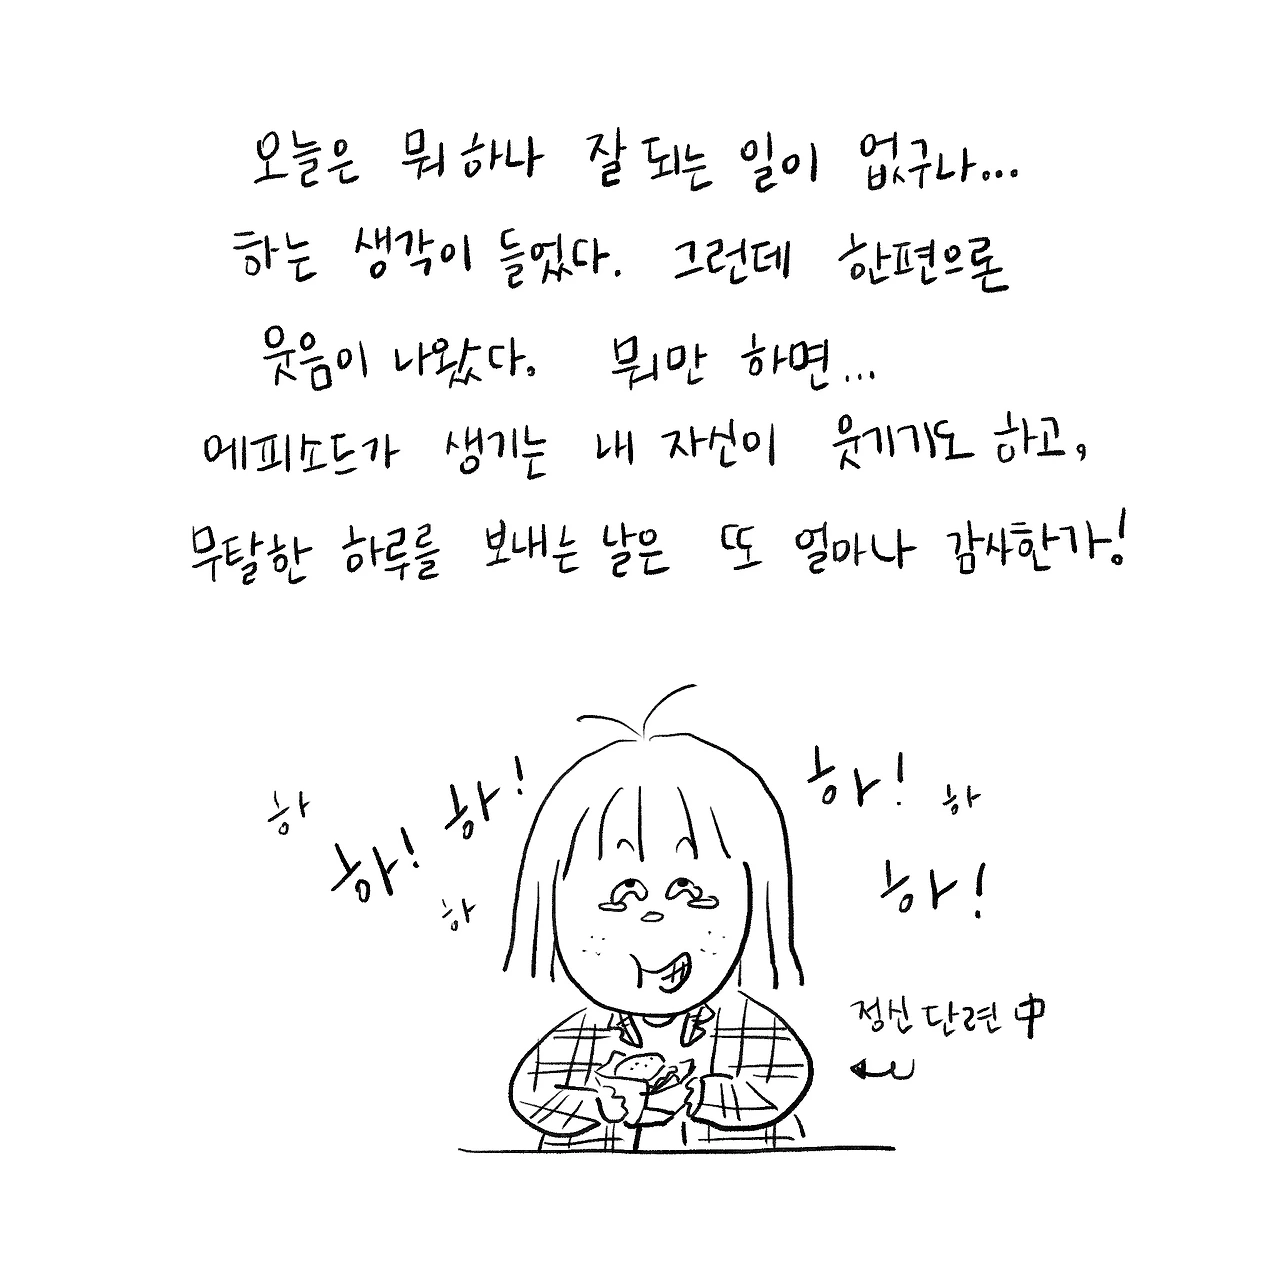 오늘은 뭐하나 잘 되는 일이 없구나...
하는 생각이 들었다. 그런데 한편으론
웃음이 나왔다. 뭐만 하면...
에피소드가 생기는 내 자신이 웃기기도 하고,
무탈한 하루를 보내는 날은 또 얼마나 감사한가!
하 하! 하! 하
하! 하 하!
정신 단련 中